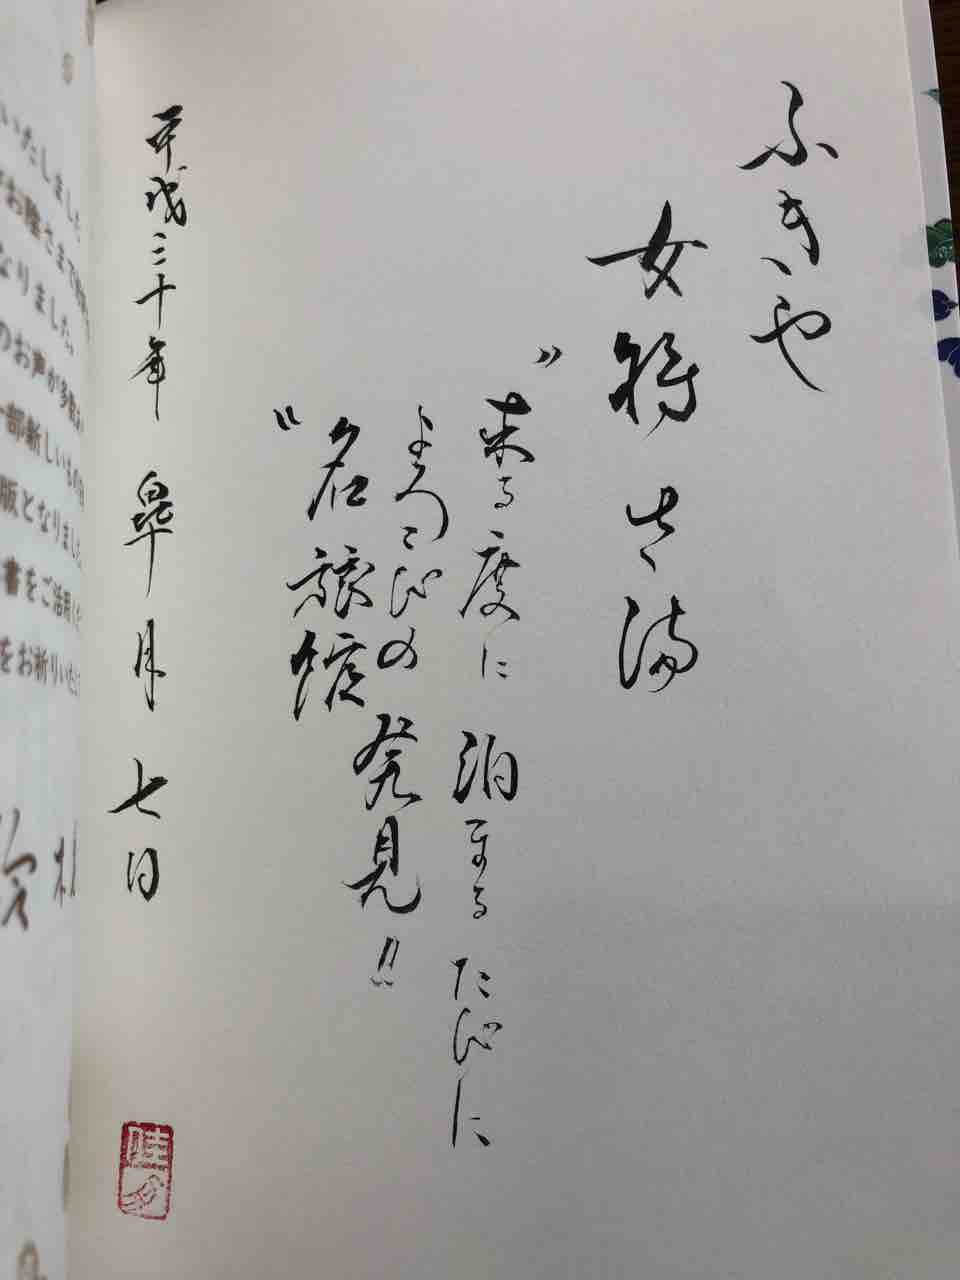 ふきや
女将さま
"来る度に泊まるたびに
よろこびの発見!!
名旅館"
平成三十年 皐月七日
いたしました
お陰さまで
なりました。
のお声が多数
部新しいもの
版となりました
書をご活用
をお祈りいた